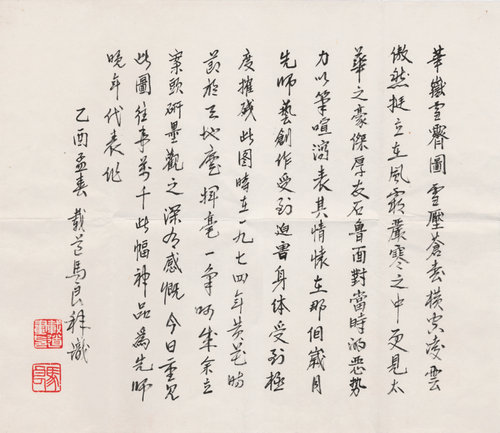 華嶽雪霽圖雪壓蒼松橫空凌雲
傲然挺立在風霜嚴寒之中更見太
華之豪傑厚友石魯面對當時的惡勢
力以筆喧瀉表其情懷在那個歲月
先師藝創作受到迫害身体受到極
度摧殘此图時在一九七四年黄花時
節於揮毫一筆呵成余立
案頭研墨觀之深為感慨今日重见
此圖往事萬千此幅神品為先師
晚年代表作
乙酉孟春載道馬良釋識